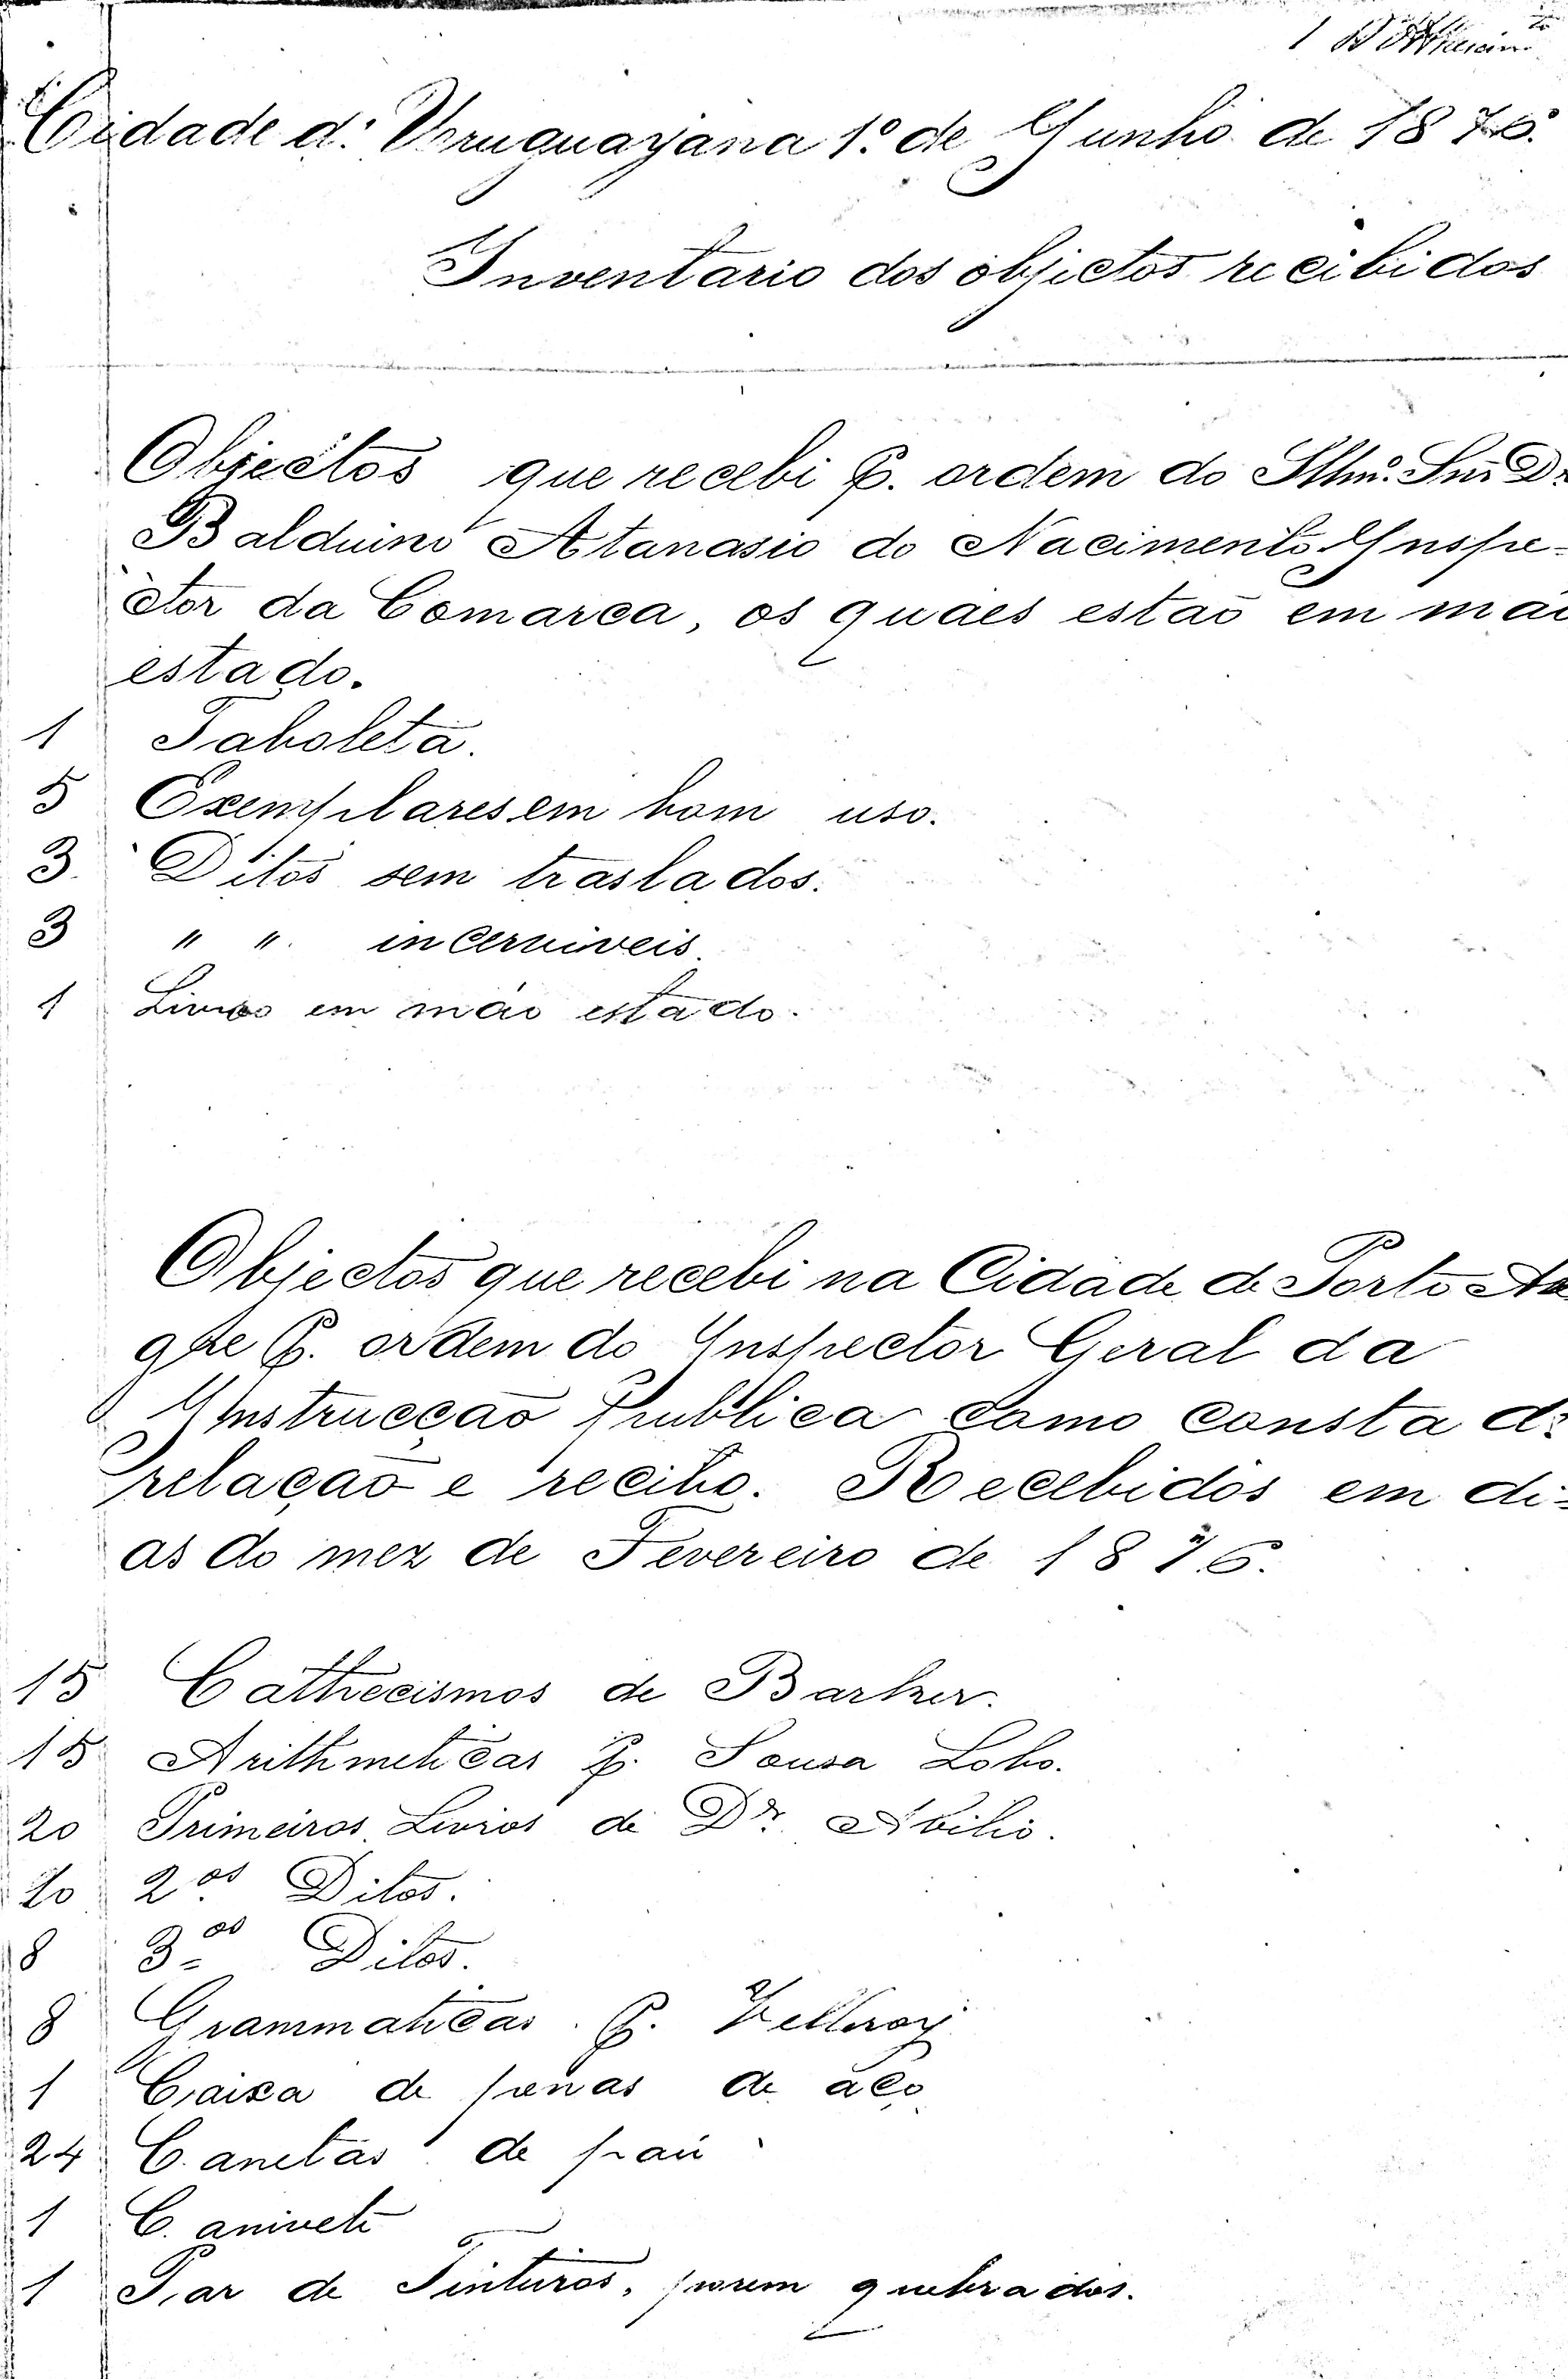 1
Cidade d'. Uruguayana 1º de Junho de 1876.
Inventario dos objictos recibidos
Objectos que recebi P. ordem do Illmº. Snr Dr
Balduino Atanasio do Nacimento Inspe=
ctor da Comarca, os quaes estaõ em máo
estado.
1 Taboleta.
5 Exemplares em bom uso.
3 Ditos sem traslados.
3 " " incerviveis.
1 Livro em máo estado.
Objectos que recebi na Cidade de Porto Ale
gre P. ordem do Inspector Geral da
Instrucção publica como consta da
relação e recibo. Recebidos em di=
as do mez de Fevereiro de 1876.
15 Cathecismos de Barker.
15 Arithmeticas P. Sousa Lobo.
20 Primeiros Livros de Dr. Abilio.
20 2os Ditos.
8 3os Ditos.
8 Grammaticas P. Velleroy
1 Caixa de penas de aço
24 Canetas de páu
1 Canivete
1 Par de Tinteiros, porem quebrados.